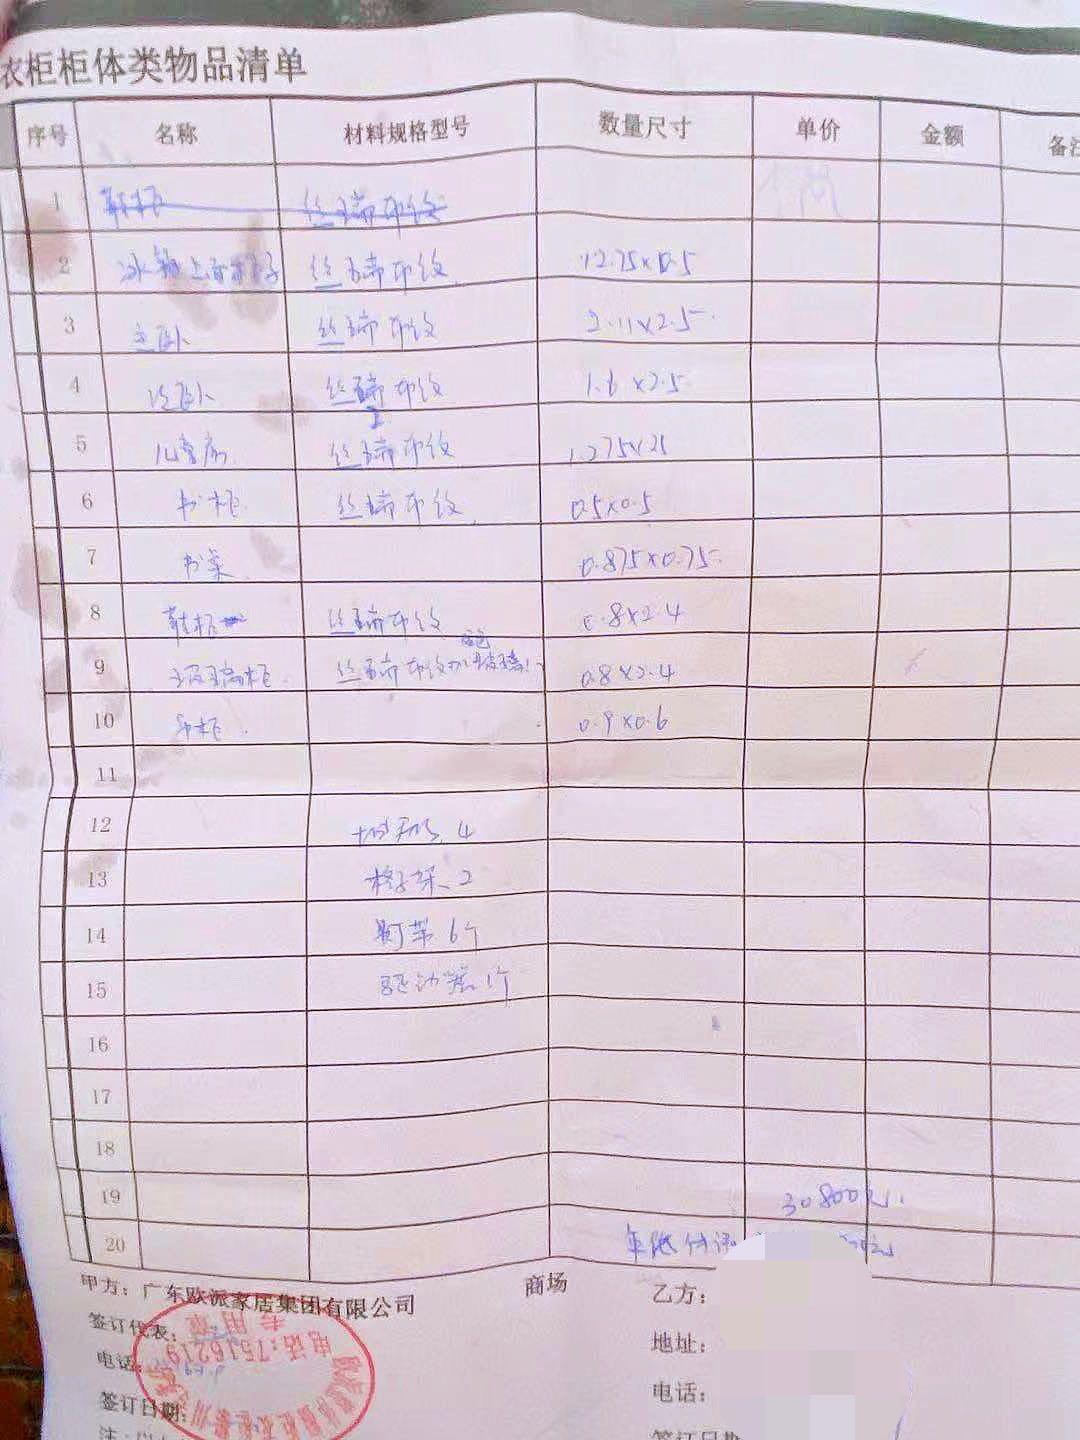 衣柜柜体类物品清单
序号 名称 材料规格型号 数量尺寸 单价 金额 备注
1 鞋柜 丝瑞布纹
2 冰箱上面柜子 丝瑞布纹 1.275×0.5
3 主卧 丝瑞布纹 2.11×2.5
4 次卧 丝瑞布纹 1.6×2.5
5 儿童房 丝瑞布纹 1.275×2.5
6 书柜 丝瑞布纹 0.5×0.5
7 书桌 0.875×0.75
8 鞋柜 丝瑞布纹 0.8×2.4
9 玻璃柜 丝瑞布纹 玻璃 0.8×2.4
10 吊柜 0.9×0.6
11
12 4
13 格子架 2
14 灯带 6个
15 驱动器 1个
16
17
18
19 30800元
20 年底付
甲方：广东欧派家居集团有限公司 商场 乙方：
签订代表： 地址：
电话： 电话：
签订日期： 签订日期
注：以
专用章
电话:7516219